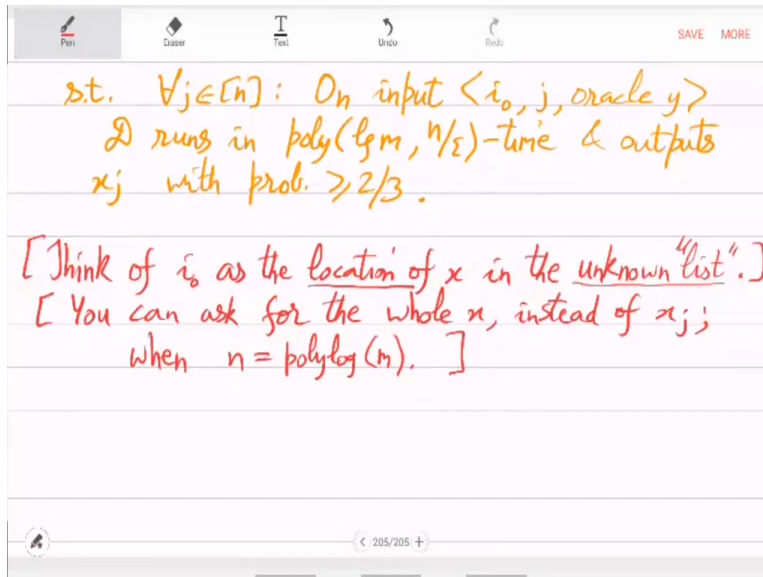 Pen Eraser Text Undo Redo SAVE MORE
s.t. ∀j∈[n]: On input <i₀, j, oracle y>
D runs in poly(lg m, n/ε)-time & outputs
xj with prob. ≥2/3.
[Think of i₀ as the location of x in the unknown "list".]
[You can ask for the whole x, instead of xj;
when n = polylog(m).]
205/205